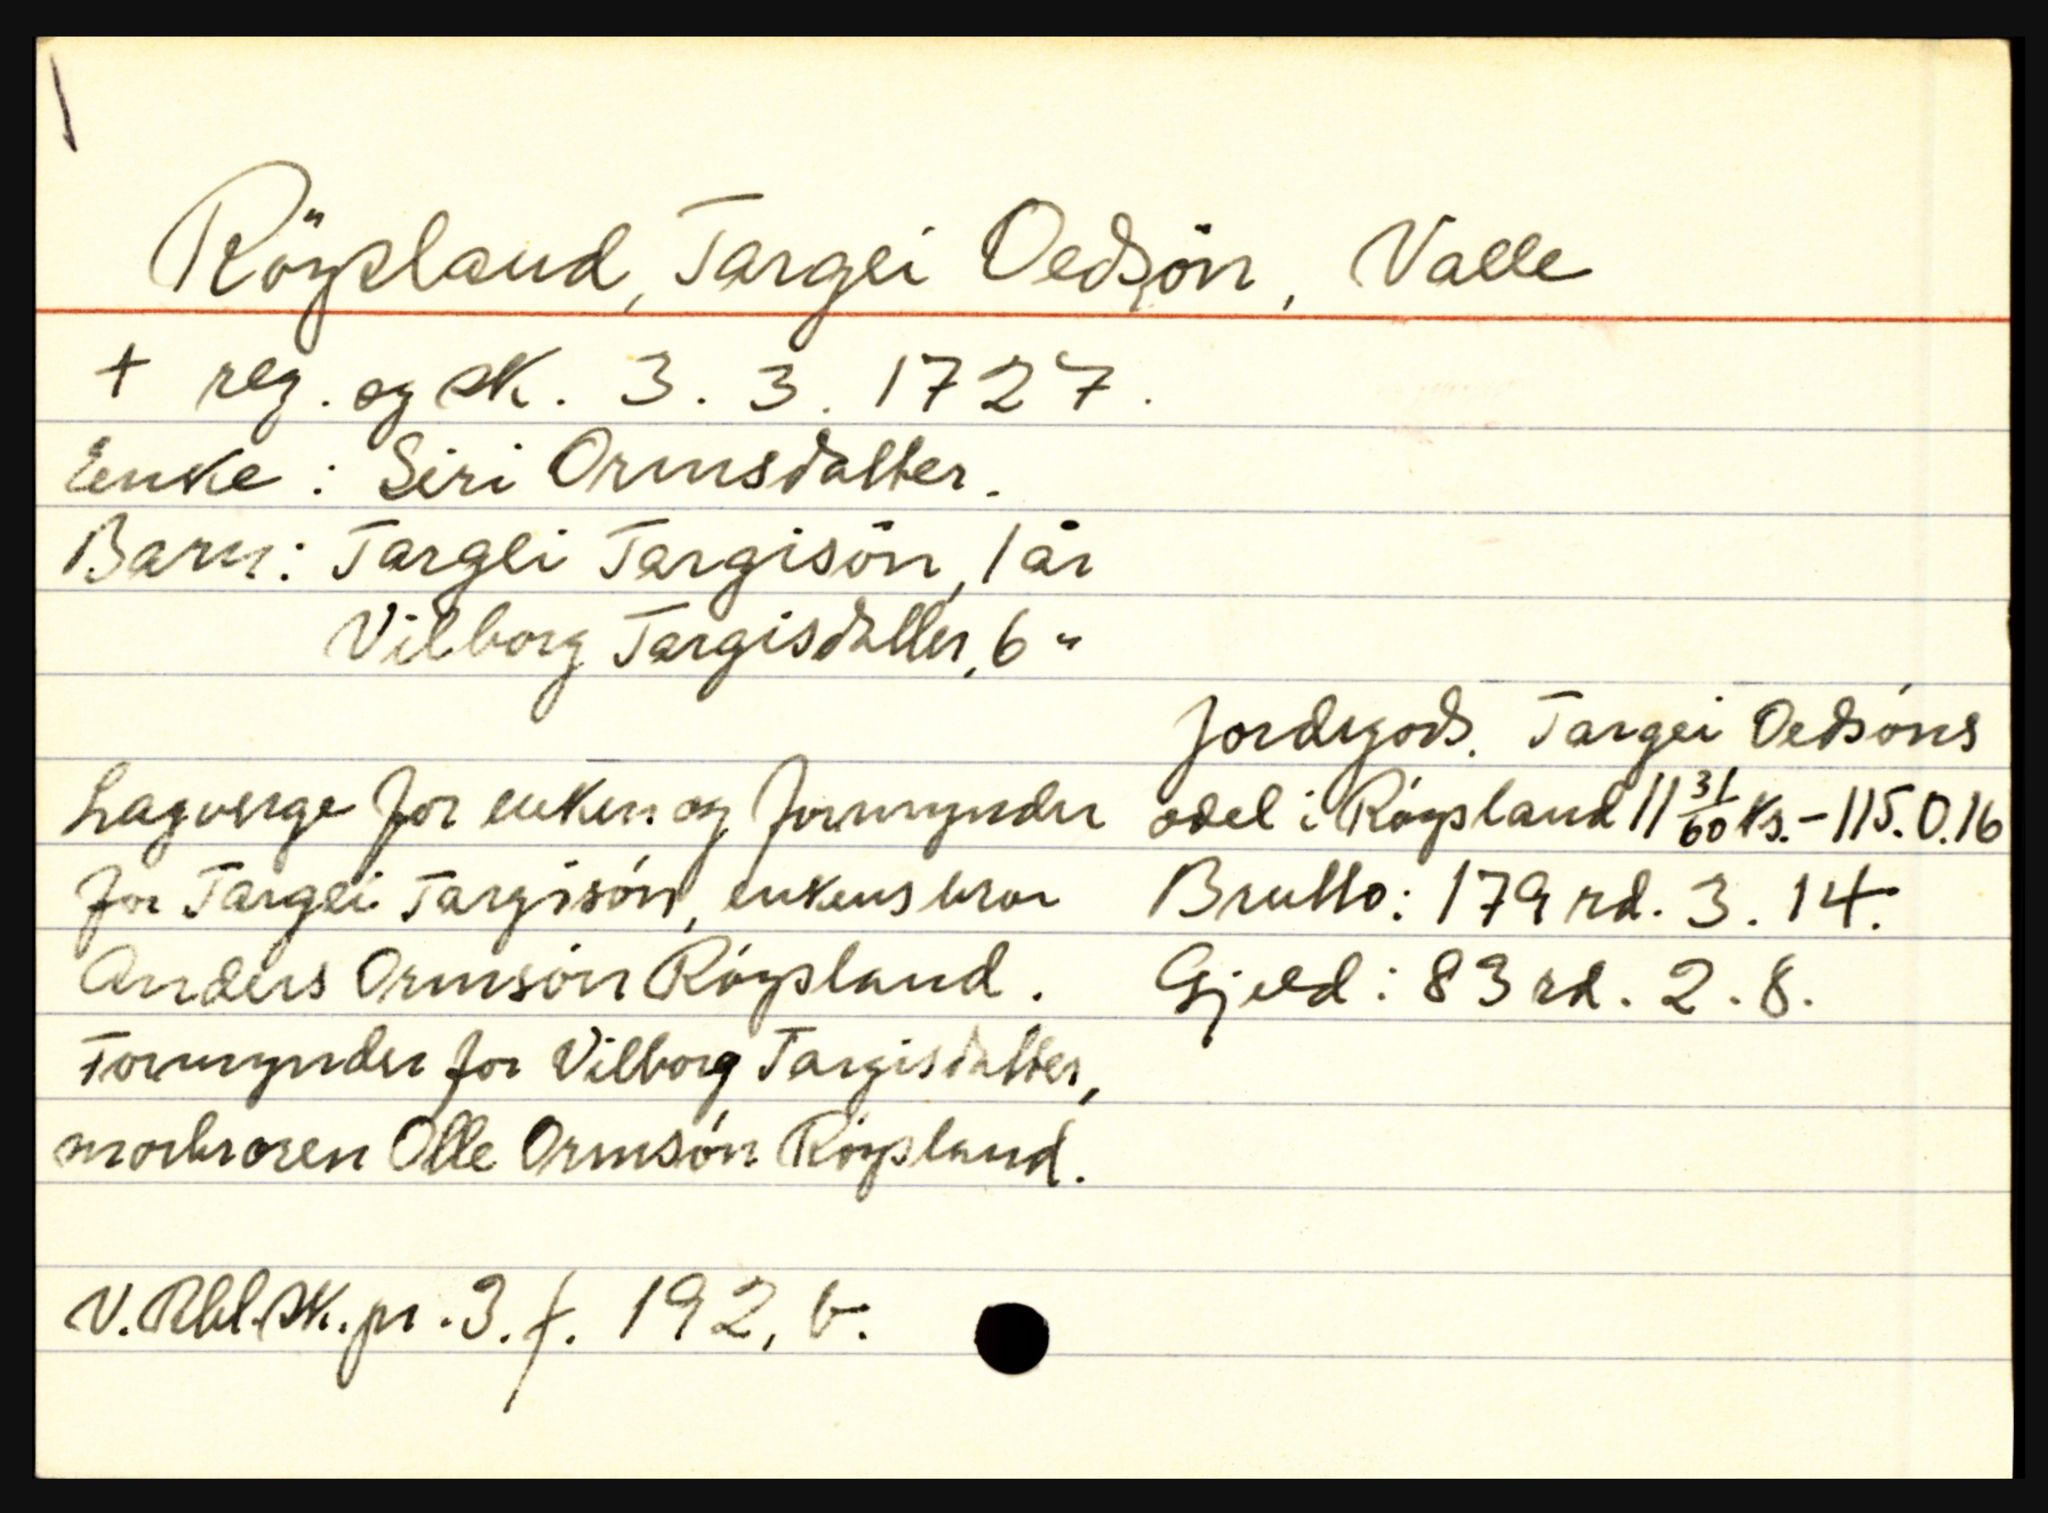 Röysland, Targei Oedsön, Valle
+ reg. og sk. 3. 3. 1727.
Enke: Siri Ormsdatter.
Barn: Targei Targisön, 1 år
Vilborg Targisdatter, 6 "
Lagverge for enken og formynder
for Targei Targisón, enkens bror
Anders Ormsón Róysland.
Formynder for Vilborg Targisdatter,
morbroren Olle Ormsón Róysland.
Jordegods. Targei Oedsóns
odel i Róysland 11 31/60 ks. - 115.0.16
Brutto: 179 rd. 3. 14.
Gjeld: 83 rd. 2. 8.
V. Rbl. sk. pr. 3. f. 192, b.